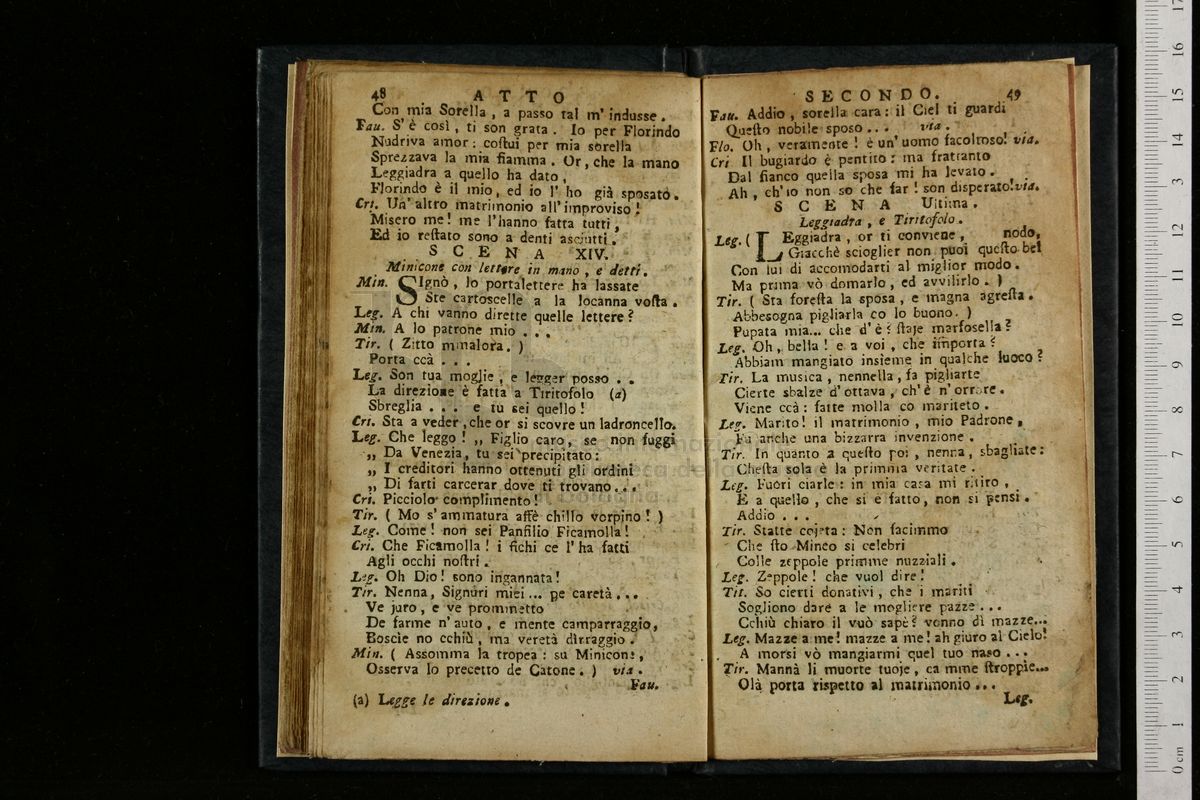 48 ATTO
Con mia Sorella, a passo tal m'indusse.
Fau. S'è così, ti son grata. Io per Florindo
Nudriva amor: coſtui per mia sorella
Sprezzava la mia fiamma. Or, che la mano
Leggiadra a quello ha dato,
Florindo è il mio, ed io l'ho già sposato.
Cri. Un'altro matrimonio all'improviso!
Misero me! me l'hanno fatta tutti,
Ed io reſtato sono a denti asciutti.
SCENA XIV.
Minicone con lettere in mano, e detti.
Min. SIgnò, lo portalettere ha lassate
Ste cartoscelle a la locanna voſta.
Leg. A chi vanno dirette quelle lettere?
Min. A lo patrone mio . . .
Tir. ( Zitto mmalora. )
Porta ccà . . .
Leg. Son tua moglie, e legger posso . .
La direzione è fatta a Tiritofolo (a)
Sbreglia . . . e tu sei quello!
Cri. Sta a veder, che or si scovre un ladroncello.
Leg. Che leggo! „ Figlio caro, se non fuggi
„ Da Venezia, tu sei precipitato:
„ I creditori hanno ottenuti gli ordini
„ Di farti carcerar dove ti trovano...
Cri. Picciolo complimento!
Tir. ( Mo s'ammatura affè chillo vorpino! )
Leg. Come! non sei Panfilio Ficamolla!
Cri. Che Ficamolla! i fichi ce l'ha fatti
Agli occhi noſtri.
Leg. Oh Dio! sono ingannata!
Tir. Nenna, Signuri miei... pe caretà...
Ve juro, e ve prommetto
De farme n'auto, e mente camparraggio,
Boscìe no cchiù, ma veretà dirraggio.
Min. ( Assomma la tropea: su Minicone,
Osserva lo precetto de Catone. ) via.
Fau.
(a) Legge le direzione.
SECONDO. 49
Fau. Addio, sorella cara: il Ciel ti guardi
Queſto nobile sposo... via.
Flo. Oh, veramente! è un'uomo facoltoso! via.
Cri Il bugiardo è pentito: ma frattanto
Dal fianco quella sposa mi ha levato.
Ah, ch'io non so che far! son disperato! via.
SCENA Ultima.
Leggiadra, e Tiritofolo.
Leg. ( LEggiadra, or ti conviene, nodo,
Giacchè scioglier non puoi queſto bel
Con lui di accomodarti al miglior modo.
Ma prima vò domarlo, ed avvilirlo. )
Tir. ( Sta foreſta la sposa, e magna agreſta.
Abbesogna pigliarla co lo buono. )
Pupata mia... che d'è? ſtaje marfosella?
Leg. Oh, bella! e a voi, che importa?
Abbiam mangiato insieme in qualche luoco?
Tir. La musica, nennella, fa pigliarte
Cierte sbalze d'ottava, ch'è n'orrore.
Viene ccà: fatte molla co mariteto.
Leg. Marito! il matrimonio, mio Padrone,
Fu anche una bizzarra invenzione.
Tir. In quanto a queſto poi, nenna, sbagliate:
Cheſta sola è la primma veritate.
Leg. Fuori ciarle: in mia casa mi ritiro,
E a quello, che si è fatto, non si pensi.
Addio . . . .
Tir. Statte cojeta: Non facimmo
Che ſto Mineo si celebri
Colle zeppole primme nuzziali.
Leg. Zeppole! che vuol dire!
Tit. So cierti donativi, che i mariti
Sogliono dare a le mogliere pazze...
Cchiù chiaro il vuò sapè? vonno dì mazze...
Leg. Mazze a me! mazze a me! ah giuro al Cielo!
A morsi vò mangiarmi quel tuo naso...
Tir. Mannà li muorte tuoje, ca mme ſtroppie...
Olà porta rispetto al matrimonio...
Leg.